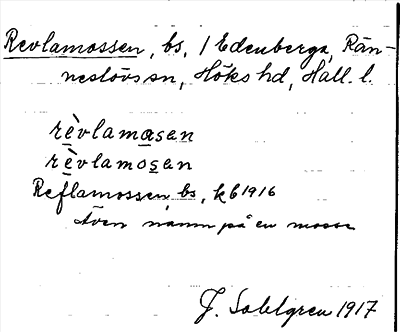 Revlamossen, bs, / Edenberga, Rän-
neslövs sn, Höks hd, Hall. l.
rèvlamasan
rèvlamosan
Reflamossen, bs, kb 1916
Även namn på en mosse
J. Sahlgren 1917